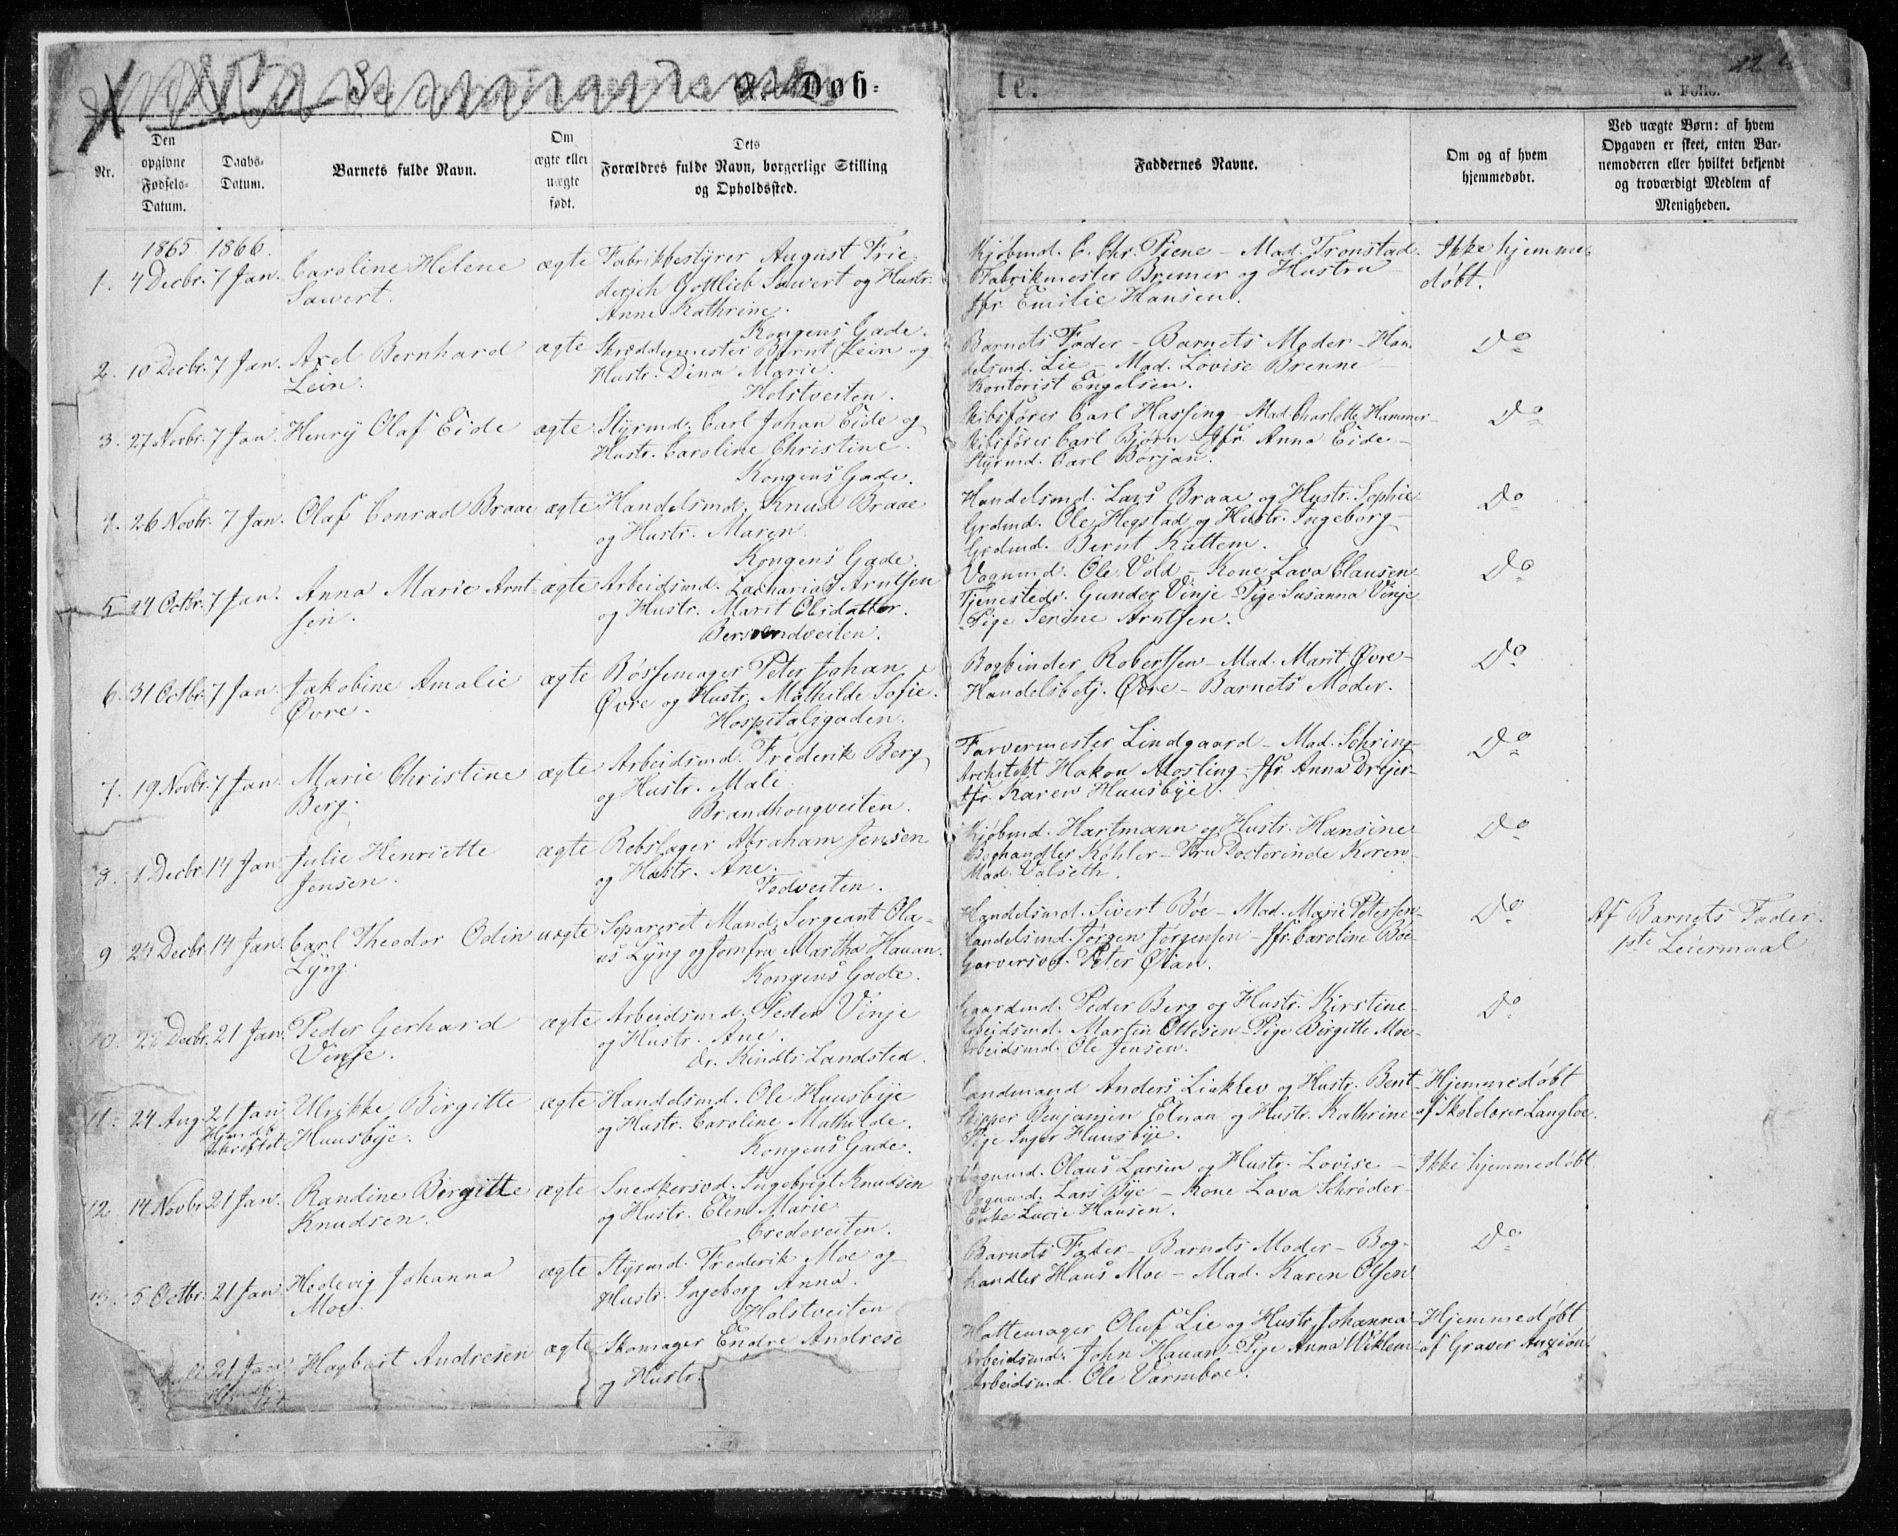 Døb-
te.
a Folio.
Nr.
Den
opgivne
Fødsels-
Datum.
Daabs-
Datum.
Barnets fulde Navn.
Om
ægte eller
uægte
født.
Dets
Forældres fulde Navn, borgerlige Stilling
og Opholdssted.
Faddernes Navne.
Om og af hvem
hjemmedøbt.
Ved uægte Børn: af hvem
Opgaven er skeet, enten Bar-
nemoderen eller hvilket bekjendt
og troværdigt Medlem af
Menigheden.
1865 1866.
1. 4 Decbr. 7 Jan. Caroline Helene
Sawert.
ægte
Fabrikbestyrer August Frie-
derich Gottlieb Sawert og Hustr.
Anne Kathrine.
Kongens Gade.
Kjøbmd. C. Chr. Piene - Mad. Tronstad
Fabrikmester Bremer og Hustru
Jfr. Emilie Hansen.
Ikke hjemme-
døbt.
2. 10 Decbr. 7 Jan. Axel Bernhard
Lein.
ægte
Skræddermester Bernt Lein og
Hustr. Dina Marie.
Holstveiten.
Barnets Fader - Barnets Moder - Han-
delsmd. Lie - Mad. Lovise Brenne -
Kontorist Engelsen.
Do
3. 27 Novbr. 7 Jan. Henry Olaf Eide
ægte
Styrmd. Carl Johan Eide og
Hustr. Caroline Christine.
Kongens Gade.
Skibsfører Carl Hassing - Mad. Charlotte Hammer -
Skibsfører Carl Bjørn - Jfr. Anna Eide -
Styrmd. Carl Børjan.
Do
4. 26 Novbr. 7 Jan. Olaf Conrad Braae
ægte
Handelsmd. Knud Braae
og Hustr. Maren.
Kongens Gade.
Handelsmd. Lars Braae og Hustr. Sophie -
Grdmd. Ole Hegstad og Hustr. Ingeborg -
Grdmd. Bernt Kattem.
Do
5. 24 Octbr. 7 Jan. Anna Marie Arnt-
sen.
ægte
Arbeidsmd. Zacharias Arntsen
og Hustr. Marit Olsdatter.
Bersvendveiten.
Vognmd. Ole Vold - Kone Lava Clausen
Tjenestedr. Gunder Vinje - Pige Susanna Vinje
Pige Serine Arntsen.
Do
6. 31 Octbr. 7 Jan. Jakobine Amalie
Øvre.
ægte
Bøssemager Peter Johan
Øvre og Hustr. Mathilde Sofie.
Hospitalsgaden.
Bogbinder Robertsen - Mad. Marit Øvre -
Handelsbetj. Øvre - Barnets Moder.
Do
7. 19 Novbr. 7 Jan. Marie Christine
Berg.
ægte
Arbeidsmd. Frederik Berg
og Hustr. Mali
Brandhougveiten.
Farvermester Lindgaard - Mad. Sehring -
Architekt Hakon Mosling - Jfr. Anna Drejer -
Jfr. Karen Huusbye.
Do
8. 1 Decbr. 14 Jan. Julie Henriette
Jensen.
ægte
Rebslager Abraham Jensen
og Hustr. Ane.
Fodveiten.
Kjøbmd. Hartmann og Hustr. Hansine -
Boghandler Køhler - Fru Doctorinde Koren
Mad. Valseth.
Do
9 24 Decbr. 14 Jan. Carl Theodor Odin
Lyng.
uægte
Separeret Mand, Sergeant Ola-
us Lyng og Jomfru Martha Hauan.
Kongens Gade.
Handelsmd. Sivert Boe - Mad. Marie Petersen
Handelsmd. Jørgen Jørgensen - Jfr. Caroline Boe -
Garversvd. Peter Øian.
Do
Af Barnets Fader.
1ste Leiermaal
10. 22 Decbr. 21 Jan. Peder Gerhard
Vinje.
ægte
Arbeidsmd. Peder Vinje
og Hustr. Ane.
Dr. Kindts Landsted.
Gaardmd. Peder Berg og Hustr. Kirstine -
Arbeidsmd. Martin Ottesen - Pige Birgitte Moe
Arbeidsmd. Ole Jensen.
Do
11. 24 Aug. 21 Jan.
Ulrikke Birgitte
Huusbye.
ægte
Handelsmd. Ole Huusbye
og Hustr. Caroline Mathilde.
Kongens Gade.
Landmand Anders Liaklev og Hustr. Berit -
Skipper Benjamin Eluan og Hustr. Kathrine
Pige Inger Huusbye.
Hjemmedøbt
af Skolelærer Langloe.
12 14 Novbr. 21 Jan. Randine Birgitte
Knudsen.
ægte
Snedkersvd. Ingebrigt Knudsen
og Hustr. Elen Marie
Credoveiten.
Vognmd. Olaus Larsen og Hustr. Lovise -
Vognmd. Lars Bye - Kone Lava Schrøder -
Enke Lucie Hansen.
Ikke hjemmedøbt
13. 5 Octbr. 21 Jan. Hedevig Johanna
Moe.
ægte
Styrmd. Frederik Moe og
Hustr. Ingeborg Anna.
Holstveiten
Barnets Fader - Barnets Moder - Bog-
handler Hans Moe - Mad. Karen Olsen
Do
21 Jan. Hagbart Andresen
ægte
Skomager Endre Andrese
og Hustr.
Hattemager Oluf Lie og Hustr. Johanna -
Arbeidsmd. John Hauan - Pige Anna Viklem
Arbeidsmd. Ole Varmboe.
Hjemmedøbt
af Graver Anzjøn